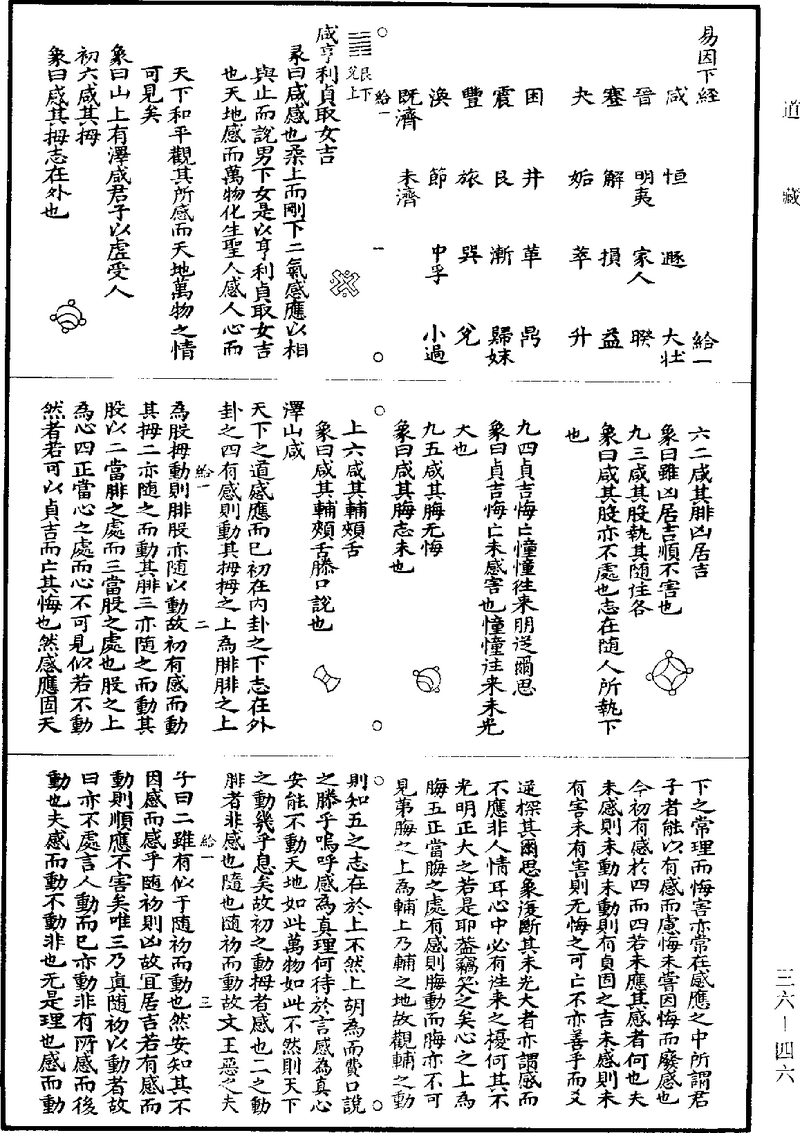 道藏
易因下經
給一
咸 恒 遯 大壯
晉 明夷 家人 睽
蹇 解 損 益
夬 姤 萃 升
困 井 革 鼎
震 艮 漸 歸妹
豐 旅 巽 兌
渙 節 中孚 小過
既濟 未濟
給一 一
艮下
兌上
咸亨利貞取女吉
彖曰咸感也柔上而剛下二氣感應以相
與止而說男下女是以亨利貞取女吉
也天地感而萬物化生聖人感人心而
天下和平觀其所感而天地萬物之情
可見矣
象曰山上有澤咸君子以虛受人
初六咸其拇
象曰咸其拇志在外也
六二咸其腓凶居吉
象曰雖凶居吉順不害也
九三咸其股執其隨往吝
象曰咸其股亦不處也志在隨人所執下
也
九四貞吉悔亡憧憧往来朋從爾思
象曰貞吉悔亡未感害也憧憧往来未光
大也
九五咸其脢无悔
象曰咸其脢志末也
上六咸其輔頰舌
象曰咸其輔頰舌滕口說也
澤山咸
天下之道感應而已初在内卦之下志在外
卦之四有感則動其拇拇之上為腓腓之上
給一 二
為股拇動則腓股亦随以動故初有感而動
其拇二亦随之而動其腓三亦随之而動其
股以二當腓之處而三當股之處也股之上
為心四正當心之處而心不可見似若不動
然者若可以貞吉而亡其悔也然感應固天
下之常理而悔害亦常在感應之中所謂君
子者能以有感而慮悔未嘗因悔而廢感也
今初有感於四而四若未應其感者何也夫
未感則未動未動則有貞固之吉未感則未
有害未有害則无悔之可亡不亦善乎而爻
遂探其爾思象復斷其未光大者亦謂感而
不應非人情耳心中必有往来之擾何其不
光明正大之若是耶蓋竊笑之矣心之上為
脢五正當脢之處有感則脢動而脢亦不可
見第脢之上為輔上乃輔之地故觀輔之動
則知五之志在於上不然上胡為而費口說
之滕乎嗚呼感為真理何待於言感為真心
安能不動天地如此萬物如此不然則天下
之動幾乎息矣故初之動拇者感也二之動
腓者非感也隨也随初而動故文王惡之夫
給一 三
子曰二雖有似于随初而動也然安知其不
因感而感乎随初則凶故宜居吉若有感而
動則順應不害矣唯三乃真随初以動者故
曰亦不處言人動而已亦動非有所感而後
動也夫感而動不動非也无是理也感而動
三六—四六